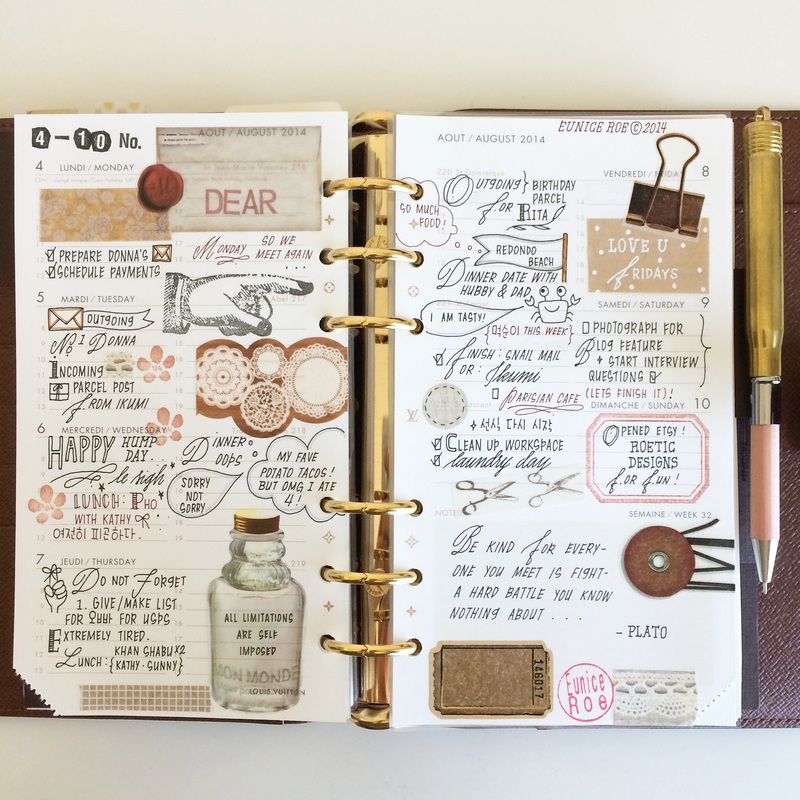 4-10 No.
AOUT / AUGUST 2014
4 LUNDI / MONDAY
DEAR
PREPARE DONNA'S
SCHEDULE PAYMENTS
MONDAY SO WE
MEET AGAIN
....
5 MARDI / TUESDAY
217
OUTGOING
No. 1 DONNA
INCOMING
PARCEL POST
FROM IKUMI
6 MERCREDI / WEDNESDAY
218
HAPPY HUMP
DAY...
Le sigh
DINNER
OOPS
MY FAVE
POTATO TACOS!
BUT OMG I ATE
4!
SORRY
NOT
SORRY
LUNCH: PHO
WITH KATHY R.
여전히 피곤하다.
7 JEUDI / THURSDAY
219
DO NOT FORGET
1. GIVE/MAKE LIST
FOR 오빠 FOR USPS
EXTREMELY TIRED.
LUNCH: KHAN SHABU x2
{KATHY · SUNNY}
ALL LIMITATIONS
ARE SELF
IMPOSED
MON MONDE
LOUIS VUITTON
EUNICE ROE © 2014
AOUT / AUGUST 2014
VENDREDI / FRIDAY 8
OUTGOING} BIRTHDAY
PARCEL
FOR RITA
SO MUCH
FOOD!
REDONDO
BEACH
LOVE U
FRIDAYS
DINNER DATE WITH
HUBBY & DAD
I AM TASTY!
THIS WEEK}
SAMEDI / SATURDAY 9
PHOTOGRAPH FOR
BLOG FEATURE
+ START INTERVIEW
QUESTIONS
(LETS FINISH IT)!
FINISH: SNAIL MAIL
FOR: Ikumi
PARISIAN CAFE
다시 시작
DIMANCHE / SUNDAY 10
CLEAN UP WORKSPACE
laundry day
OPENED ETSY!
ROETIC
DESIGNS
for fun!
NOTES
SEMAINE / WEEK 32
BE KIND FOR EVERY-
ONE YOU MEET IS FIGHT-
A HARD BATTLE YOU KNOW
NOTHING ABOUT ...
- PLATO
146017
Eunice
Roe